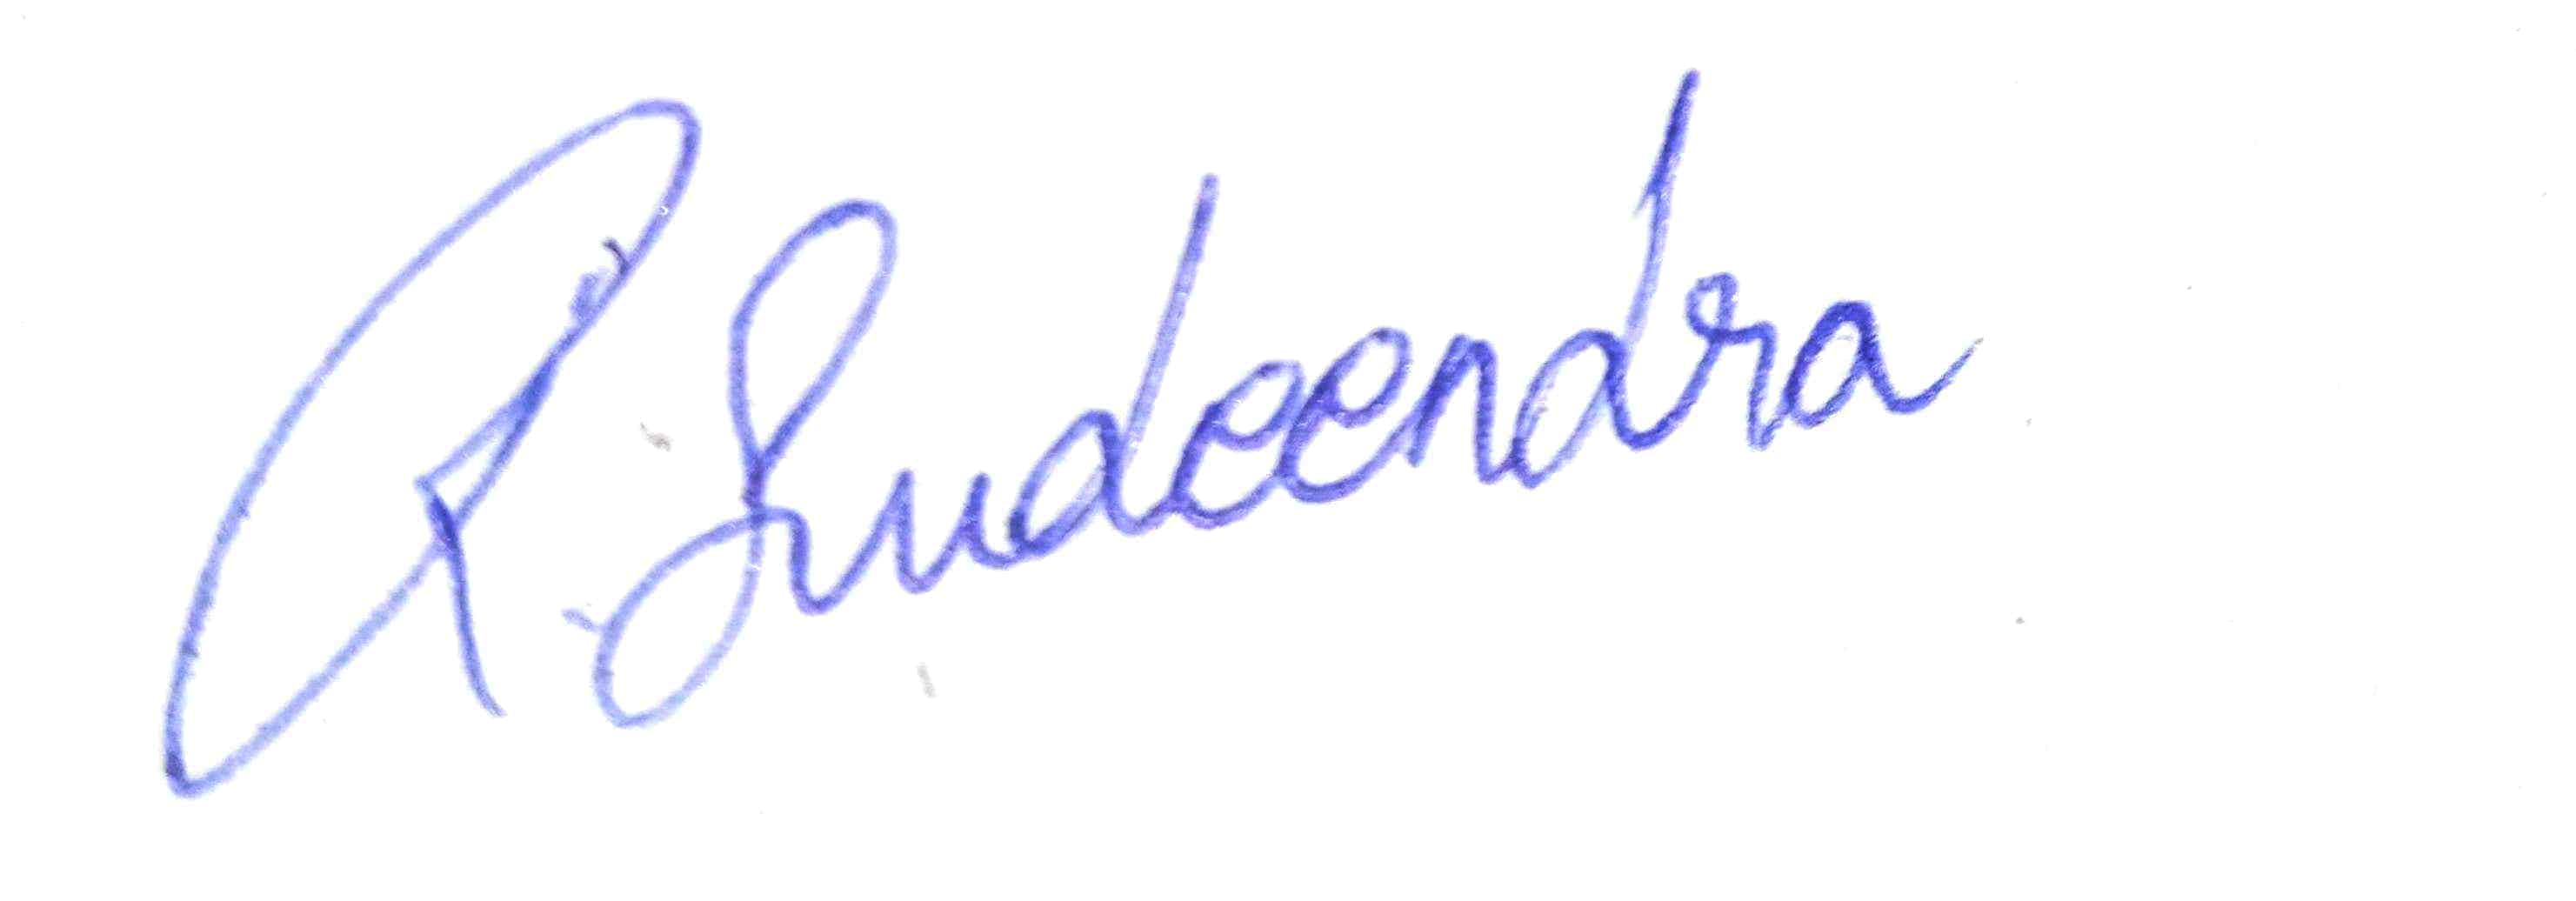 R. Sudeendra